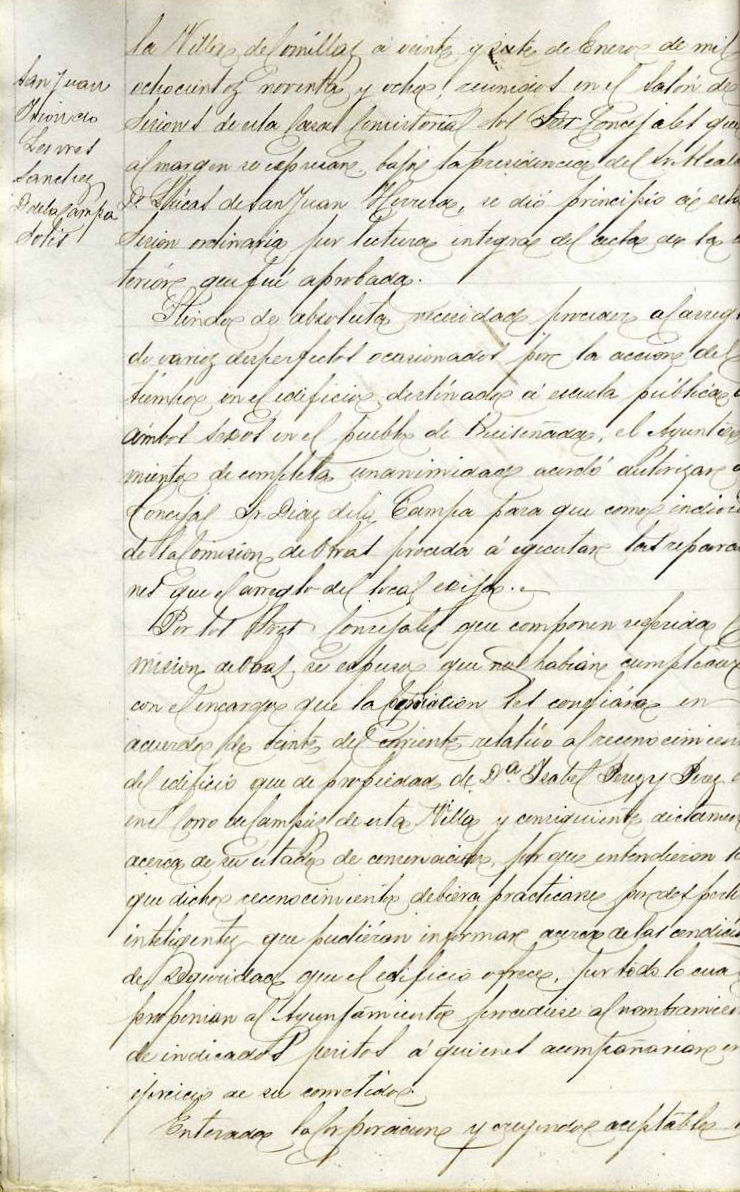 San Juan
Lesmes
Sanchez
D de la Campa
Solis
la Villa de Comillas á veinte y siete de Enero de mil
ochocientos noventa y ocho, reunidos en el Salón de
Sesiones de esta Casa Consistorial los Sres Concejales que
al margen se espresan, bajo la presidencia del Sr Alcal
Dn Lúcas de San Juan Herrera, se dió principio á esta
sesion ordinaria por lectura integra del acta de la
terior que fué aprobada.
Siendo de absoluta necesidad proceder al arreg
de varios desperfectos ocasionados por la accion del
tiempo en el edificio destinado á escuela pública
ambos sexos en el pueblo de Ruiseñada, el Ayunta
miento de completa unanimidad acordó autorizar
Concejal Sr Diaz de la Campa para que como indivi
de la Comision de Obras proceda á egecutar las repara
nes que el arreglo del local exija.
Por los Sres Concejales que componen referida
mision de Obras, se espuso que no habian cumplido
con el encargo que la Corporacion les confiára en
acuerdo de veinte del corriente relativo al reconocimien
del edificio que de propiedad de Dª Isabel Perez y Perez
en el Corro de Campíos de esta Villa y consiguiente dictamen
acerca de su estado de conservacion, por que entendieron
que dicho reconocimiento debiera practicarse por dos peri
inteligentes que pudieran informar acerca de las condicio
de seguridad que el edificio ofrece, por todo lo cual
proponian al Ayuntamiento procediese al nombramien
de indicados Peritos á quienes acompañarian en
ejercicio de su cometido.
Enterada la Corporacion y creyendo aceptables